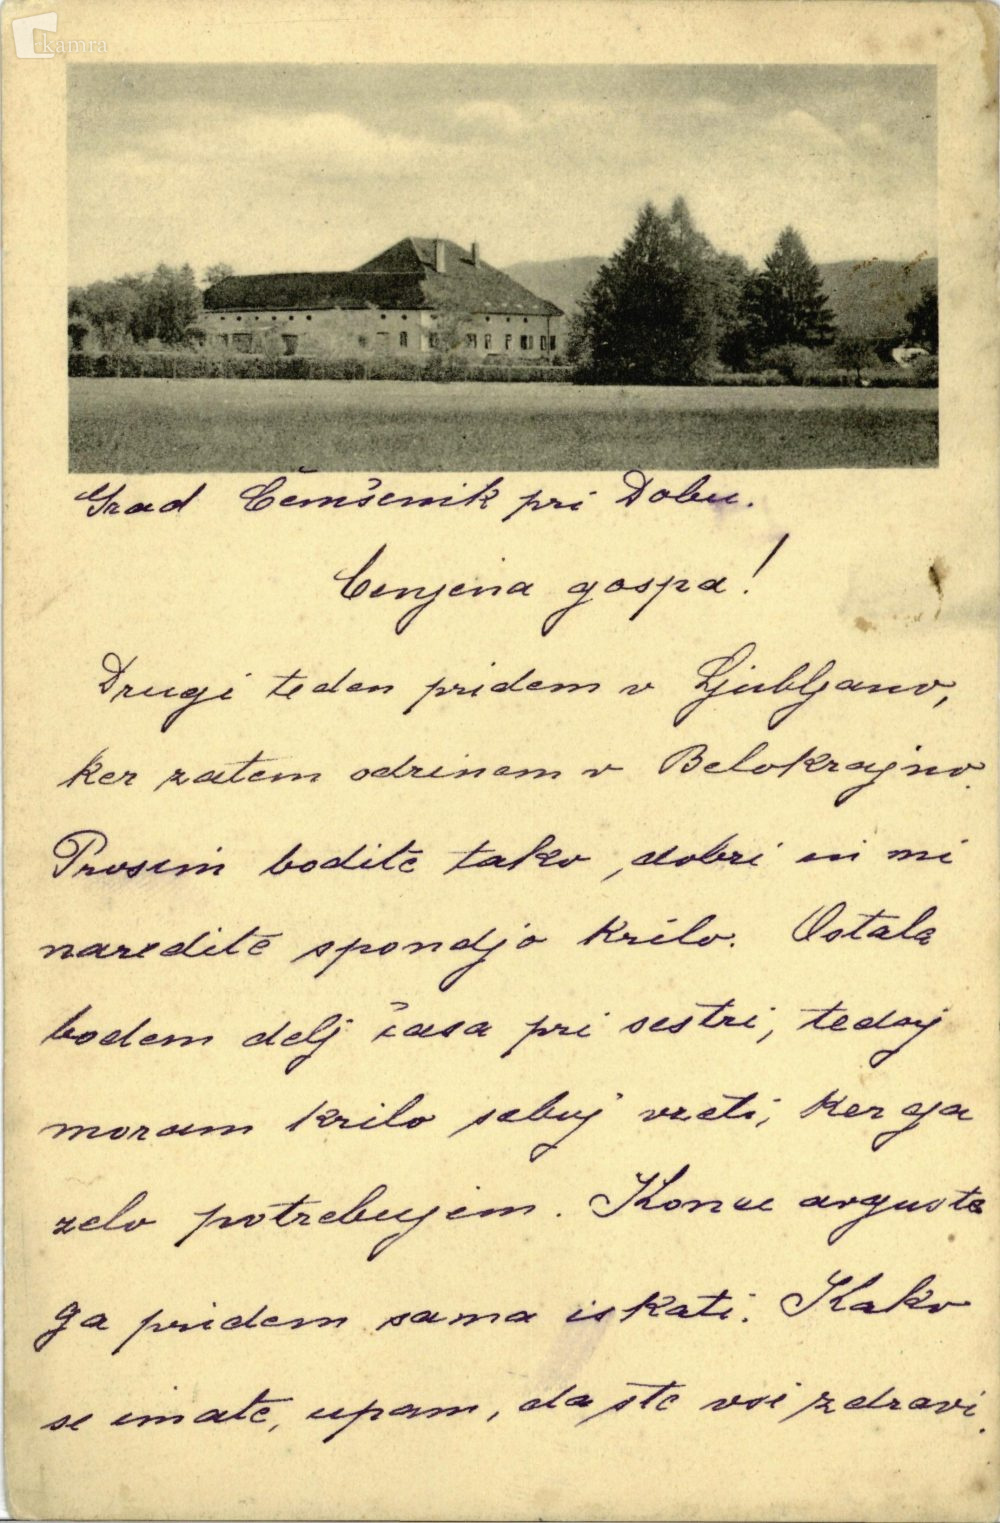 kamra
Grad Čemšenik pri Dobu.
Cenjena gospa!
Drugi teden pridem v Ljubljano,
ker zatem odrinem v Belokrajno.
Prosim bodite tako, dobri in mi
naredite spondjo krilo. Ostala
bodem delj časa pri sestri, tedaj
moram krilo sebuj vzeti, ker ga
zelo potrebujem. Koncu avgusta
ga pridem sama iskati. Kako
se imate, upam, da ste vsi zdravi.